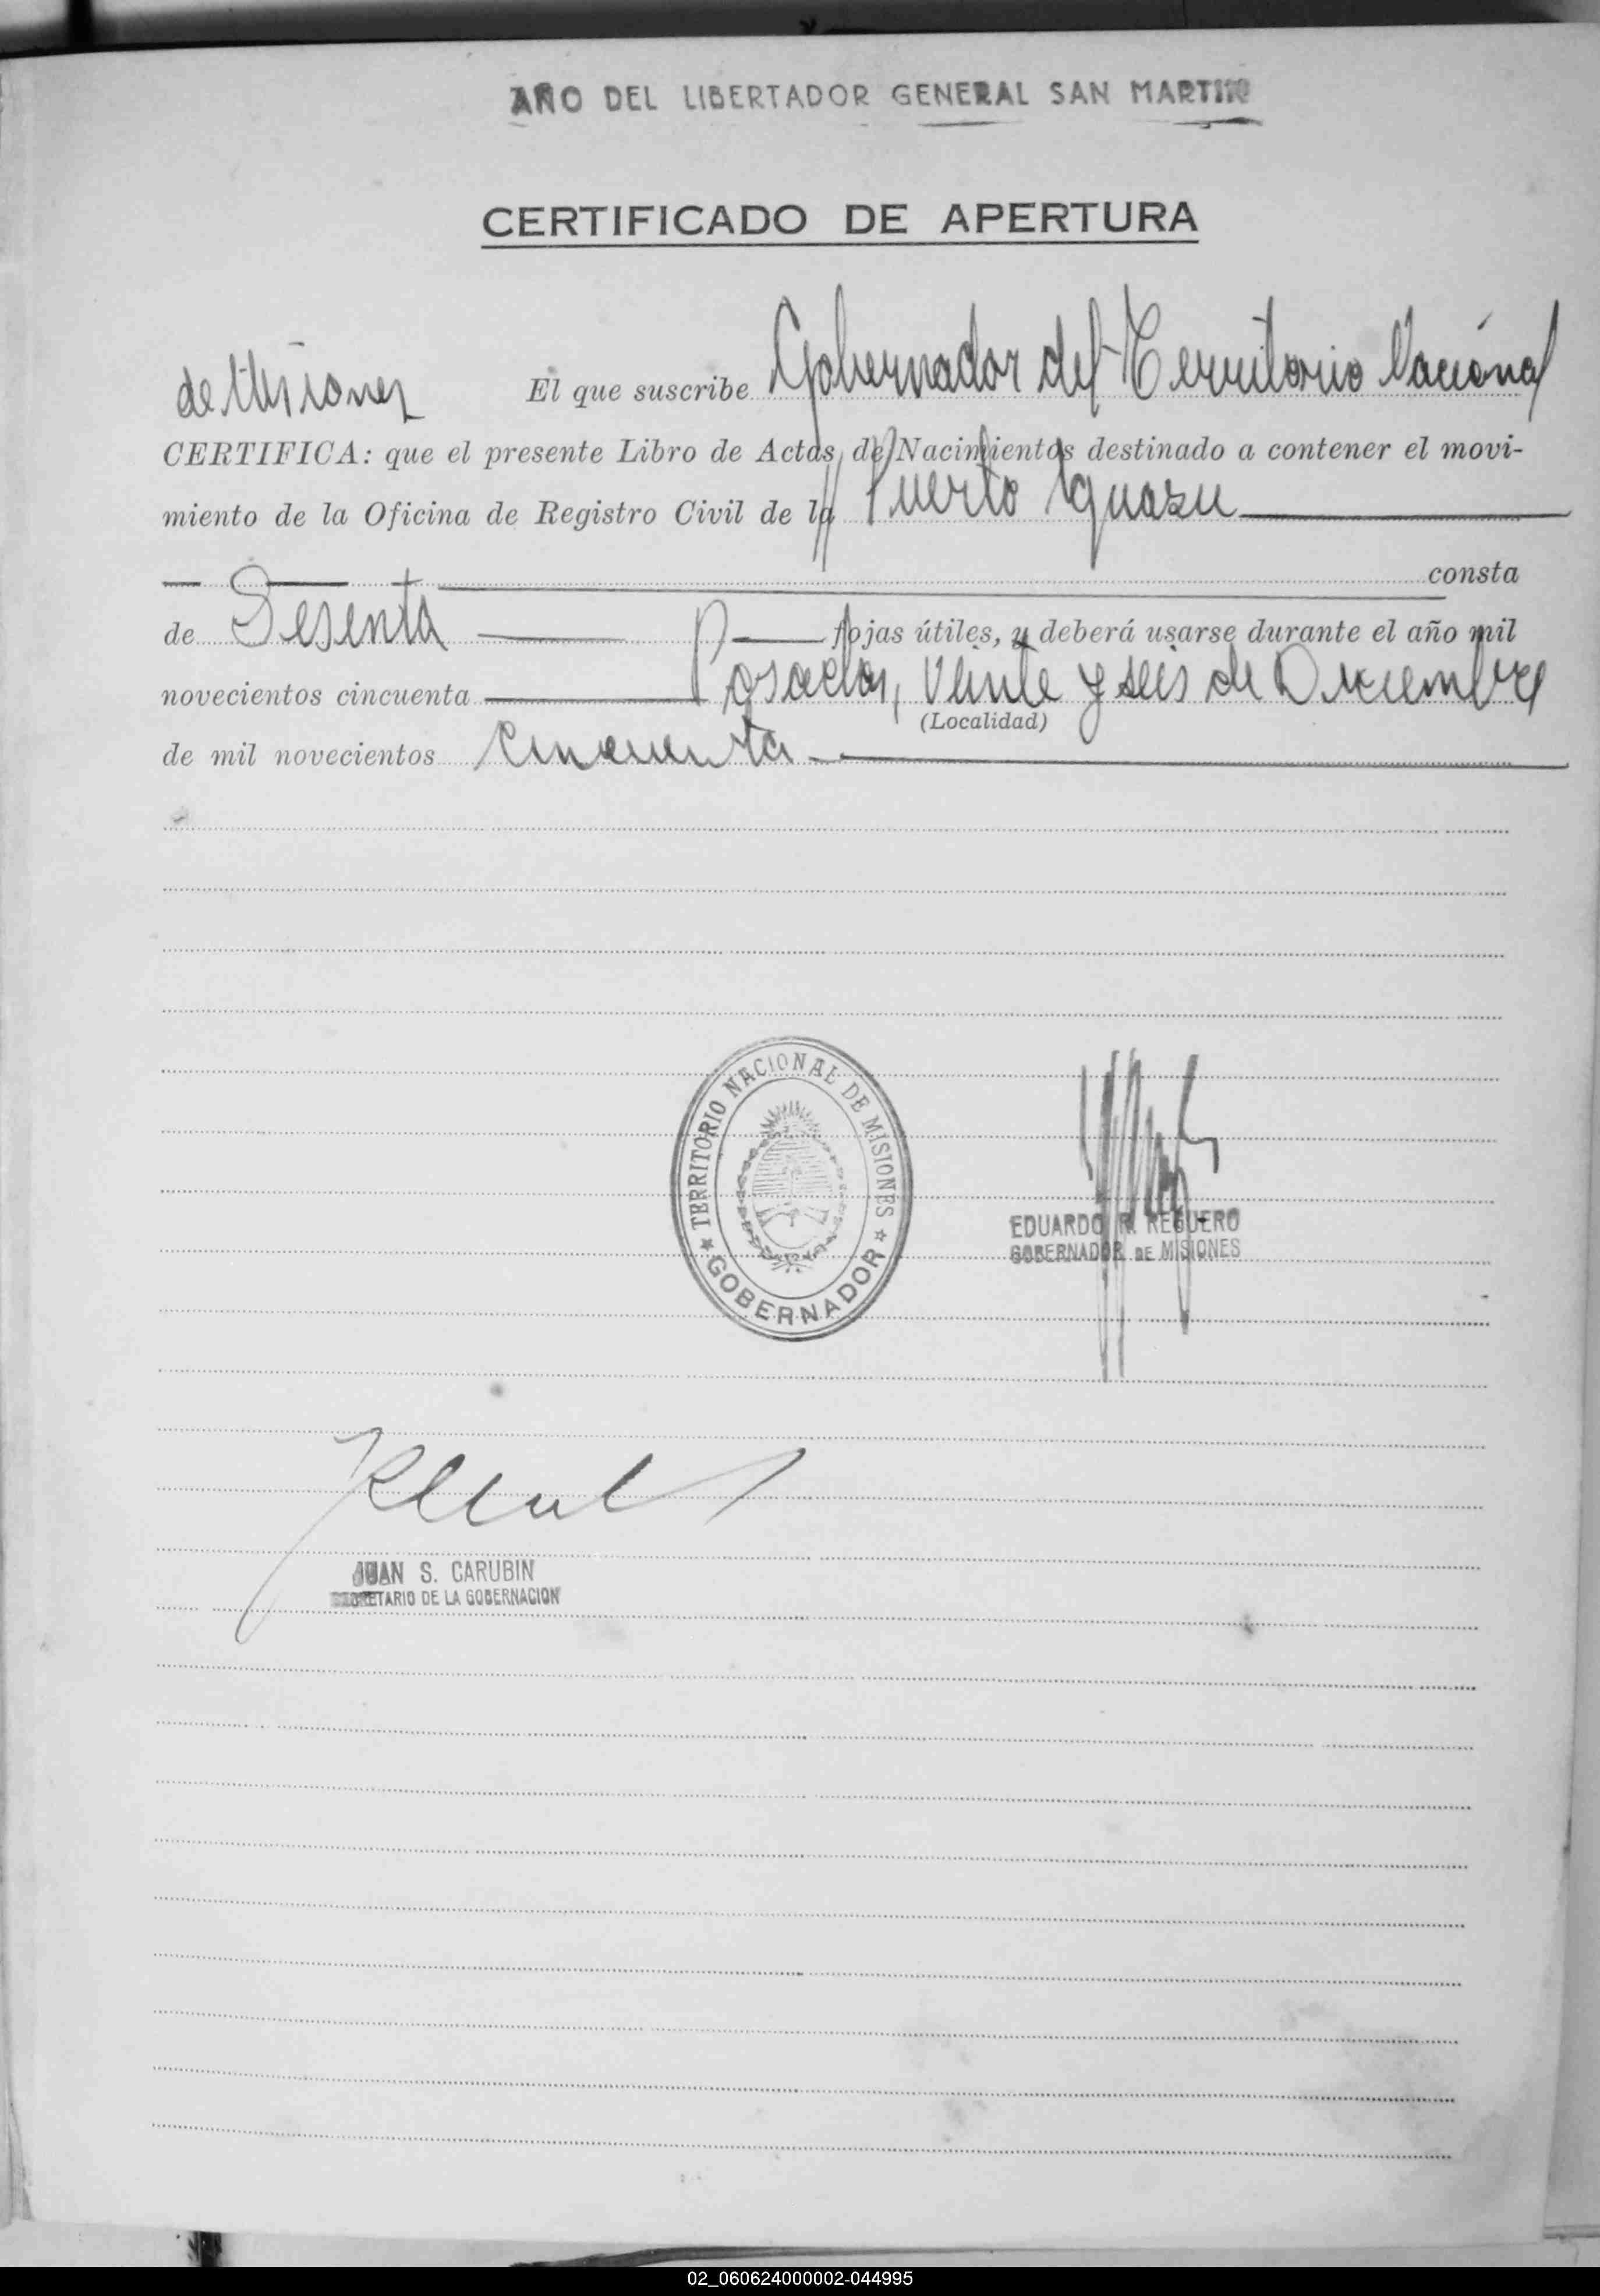 AÑO DEL LIBERTADOR GENERAL SAN MARTIN
CERTIFICADO DE APERTURA
El que suscribe Gobernador del Territorio Nacional
de Misiones
CERTIFICA: que el presente Libro de Actas de Nacimientos destinado a contener el movi-
miento de la Oficina de Registro Civil de la Puerto Iguazu
consta
de Sesenta fojas útiles, y deberá usarse durante el año mil
novecientos cincuenta Posadas, Veinte y seis de Diciembre
(Localidad)
de mil novecientos cincuenta
TERRITORIO NACIONAL DE MISIONES
GOBERNADOR
EDUARDO R. REGUERO
GOBERNADOR DE MISIONES
JUAN S. CARUBIN
SECRETARIO DE LA GOBERNACION
02_060624000002-044995